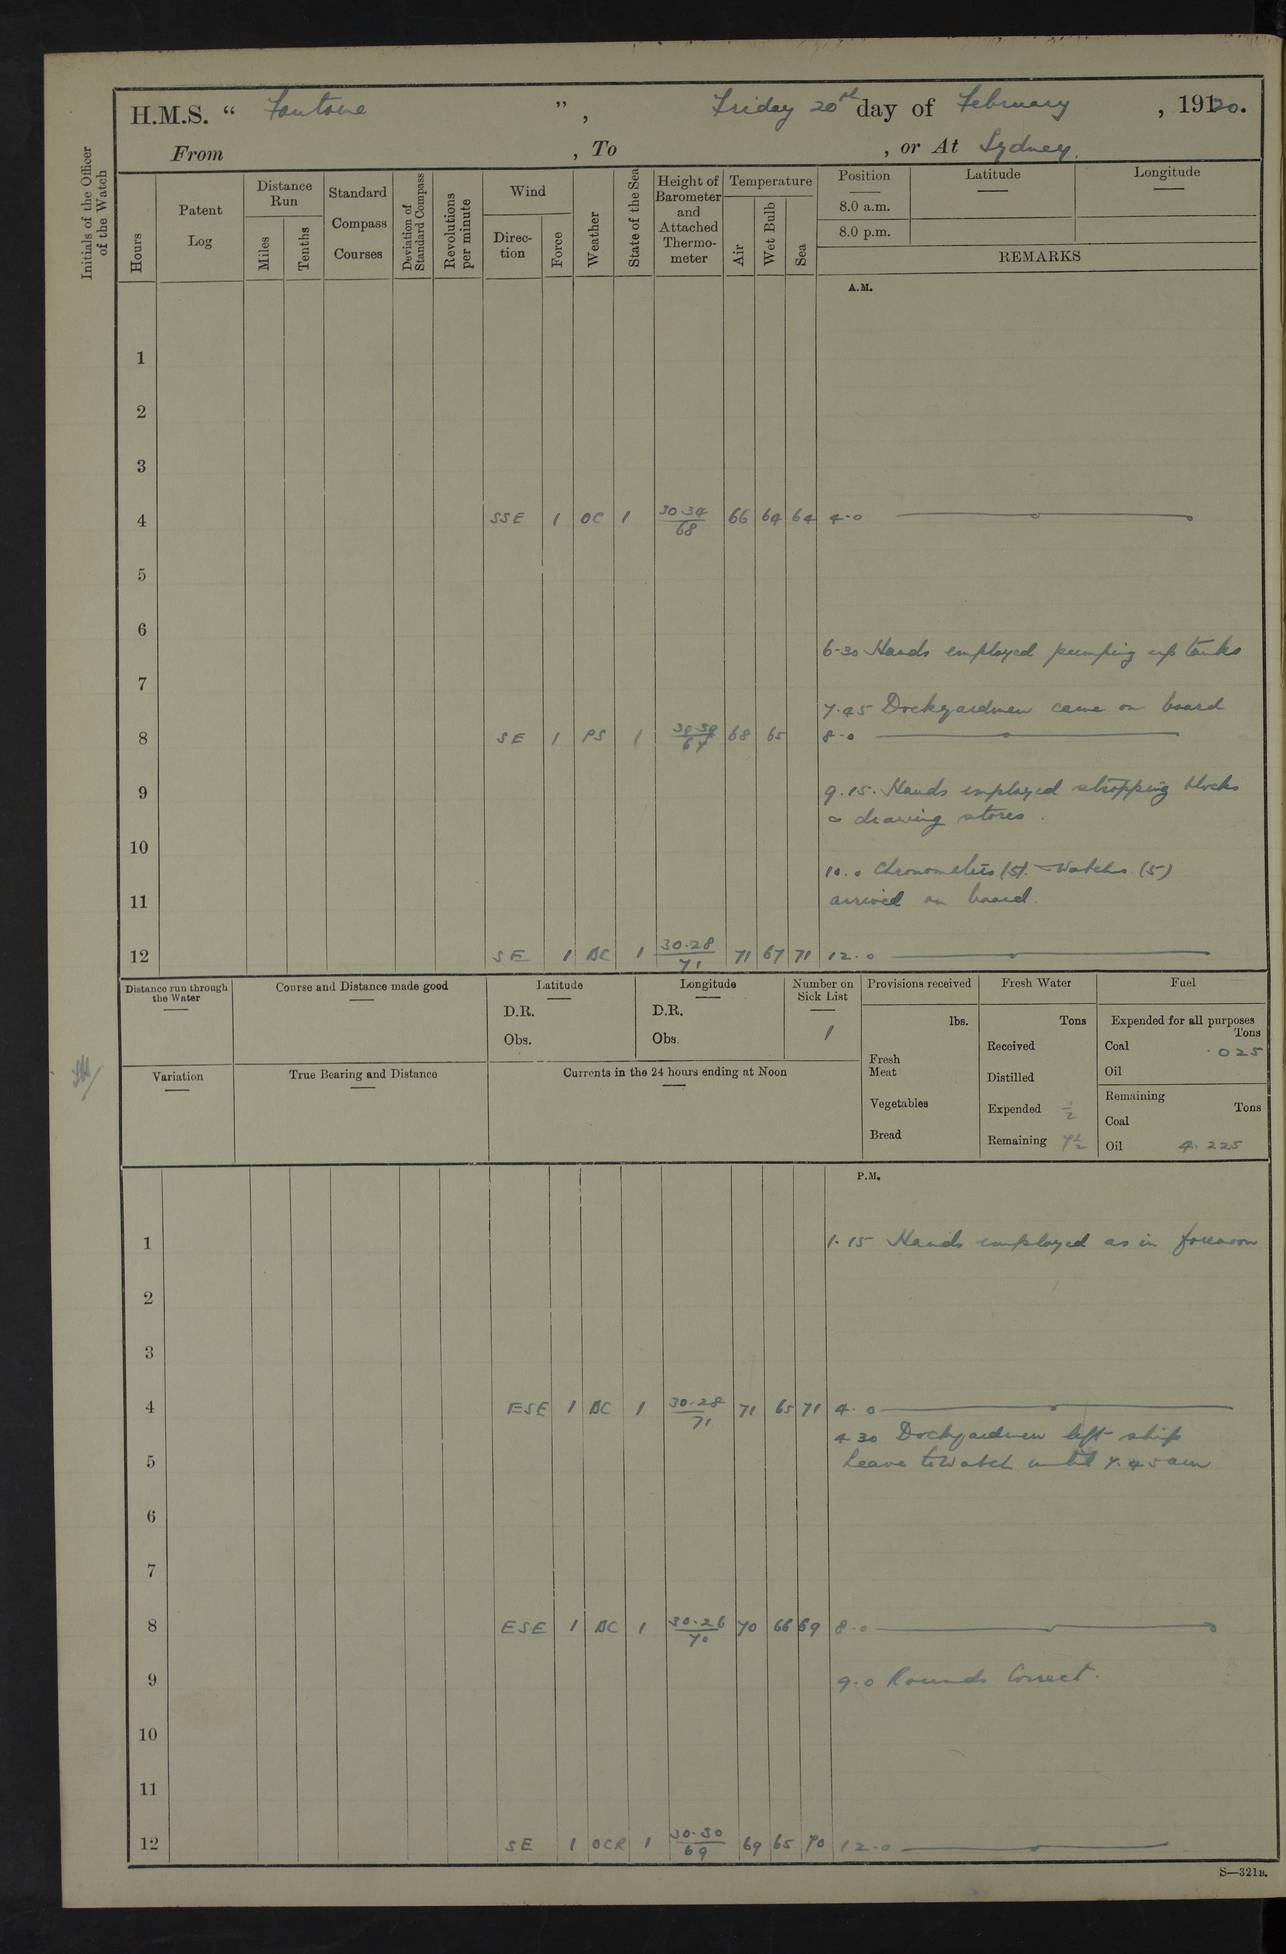 H.M.S. “ Fantome ” , Friday 20th day of February , 19120.
From , To , or At Sydney.
Initials of the Officer of the Watch
Hours
Patent Log
Distance Run
Miles
Tenths
Standard Compass Courses
Deviation of Standard Compass
Revolutions per minute
Wind
Direction
Force
Weather
State of the Sea
Height of Barometer and Attached Thermometer
Temperature
Air
Wet Bulb
Sea
Position
8.0 a.m.
8.0 p.m.
Latitude
Longitude
REMARKS
A.M.
1
2
3
4 SSE 1 OC 1 30.34/68 66 64 64 4.0
5
6
6.30 Hands employed pumping up tanks
7
7.45 Dockyardmen came on board
8 SE 1 PS 1 67 68 65 8.0
9 9.15. Hands employed stropping blocks
& drawing stores.
10
10.0 Chronometers (5). Watches (5)
11 arrived on board.
12 SE 1 BC 1 30.28/71 71 67 71 12.0
Distance run through the Water
Course and Distance made good
Latitude
D.R.
Obs.
Longitude
D.R.
Obs.
Number on Sick List
1
Provisions received
lbs.
Fresh Meat
Vegetables
Bread
Fresh Water
Tons
Received
Distilled
Expended ½
Remaining 7½
Fuel
Expended for all purposes
Tons
Coal .025
Oil
Remaining
Tons
Coal
Oil 4.225
Variation
True Bearing and Distance
Currents in the 24 hours ending at Noon
P.M.
1 1.15 Hands employed as in forenoon
2
3
4 ESE 1 BC 1 30.28/71 71 65 71 4.0
4.30 Dockyardmen left ship
5 Leave to Watch until 7.45 am
6
7
8 ESE 1 BC 1 30.26/70 70 66 69 8.0
9 9.0 Rounds Correct.
10
11
12 SE 1 OCR 1 30.30/69 69 65 70 12.0
S—321B.